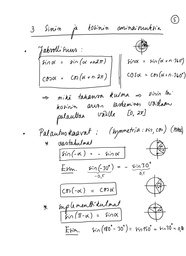 5
3 Sinin ja kosinin ominaisuuksia
• Jaksollisuus:
sin α = sin(α + n·2π)    sin α = sin(α + n·360°)
cos α = cos(α + n·2π)    cos α = cos(α + n·360°)
⇒ mikä tahansa kulma → sinin ja
kosinin arvon
palauttaa välille [0, 2π]
• Palautuskaavat: (symmetria: sin, cos)
* vastakulmat
sin(-α) = - sin α
Esim. sin(-30°) = - sin 30°
-0,5    0,5
cos(-α) = cos α
* suplementtikulmat
sin(π-α) = sin α
Esim. sin(180°-30°) = sin 150° = sin 30° = 0,5